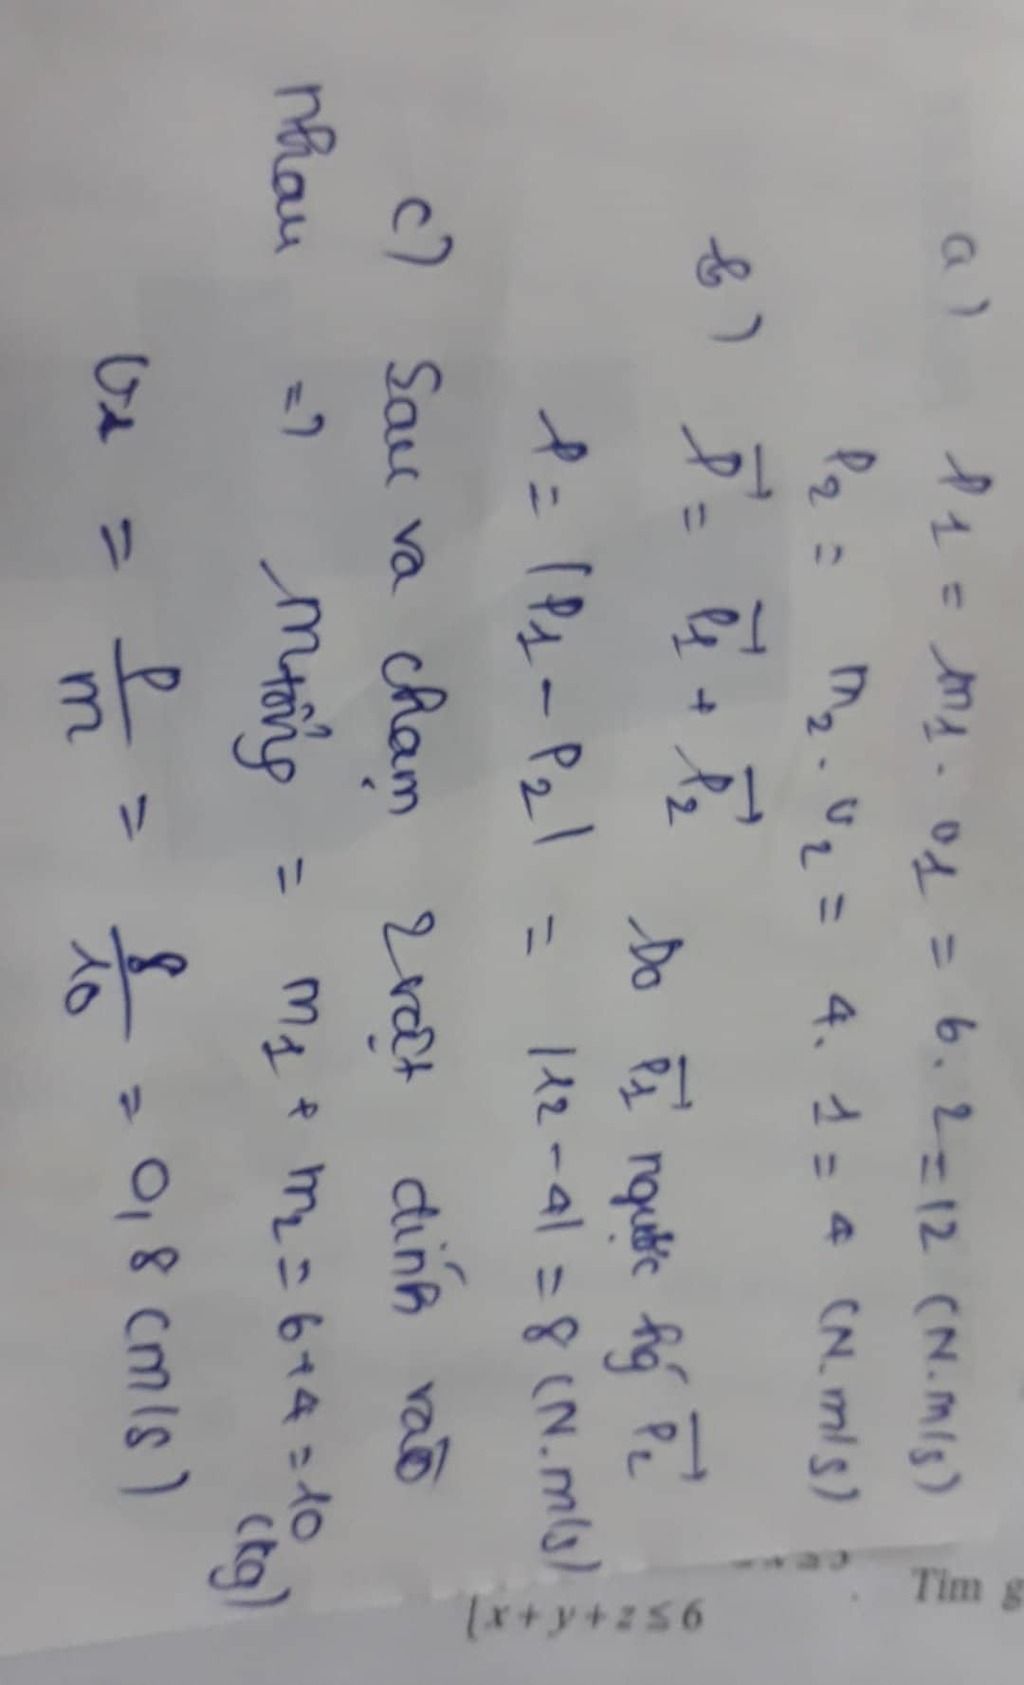 a) P1 = m1. v1 = 6. 2 = 12 (N.m/s)
P2 = m2. v2 = 4. 1 = 4 (N.m/s)
b) P⃗ = P⃗1 + P⃗2 Do P⃗1 ngược hg P⃗2
P = |P1 - P2| = |12 - 4| = 8 (N.m/s)
c) Sau va chạm 2 vật dính vào
nhau => m tổng = m1 + m2 = 6 + 4 = 10
(kg)
= P/m = 8/10 = 0,8 (m/s)
Tìm g
x + y + z ≤ 6